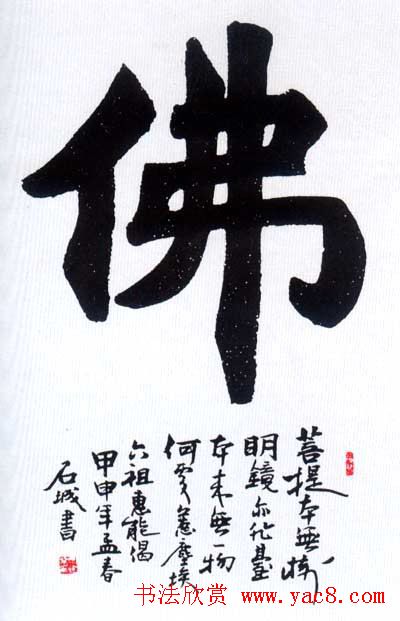 佛
菩提本無樹
明鏡亦非臺
本来無一物
何處惹塵埃
六祖惠能偈
甲申年孟春
石城書
书法欣赏 www.yac8.com